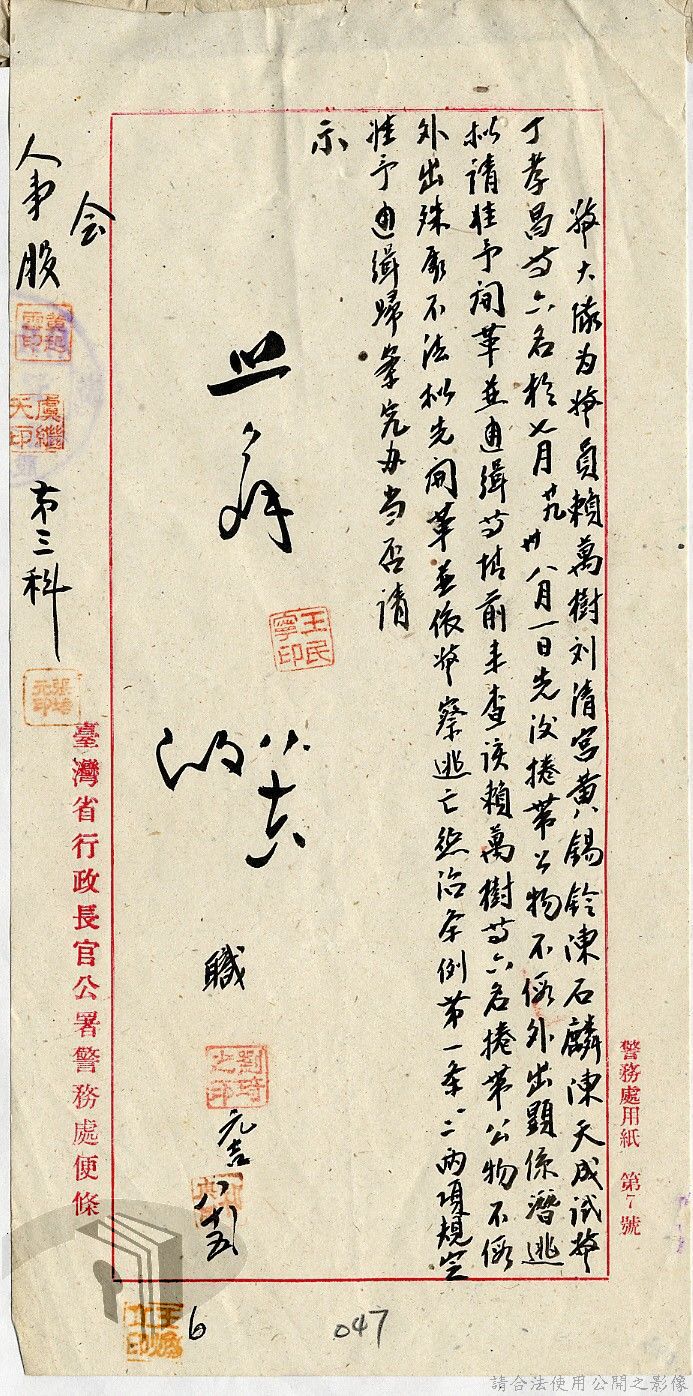 警務處用紙　第7號
警大隊为警員賴萬樹刘清宮黄錫鈴陳石麟陳天成試警
丁孝昌等六名於七月廿九卅八月一日先后捲帶公物不假外出顕係潛逃
拟請准予開革並通緝等情前来查该賴萬樹等六名捲带公物不假
外出殊屬不法拟先開革並依警察逃亡惩治条例第一条一二兩項規定
准予通緝歸案究办当否請
示
王民寧印
八六
職
劉琦之印
八十五
臺灣省行政長官公署警務處便條
会
人事股
黃起雲印
虞繼天印
第三科
張培元印
6
047
請合法使用公開之影像